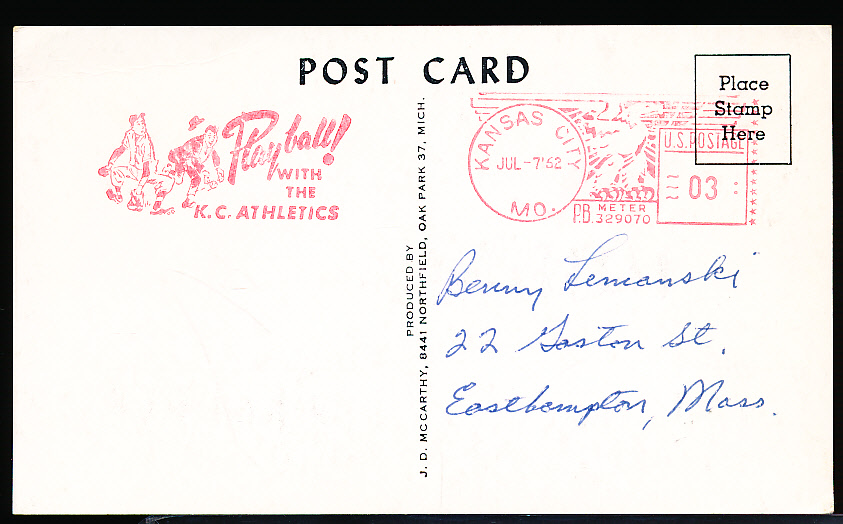 POST CARD
Place
Stamp
Here
Play ball!
WITH
THE
K.C. ATHLETICS
KANSAS CITY
JUL-7'62
MO.
U.S. POSTAGE
03
P.B. METER
329070
PRODUCED BY
J. D. MCCARTHY, 8441 NORTHFIELD, OAK PARK 37, MICH.
Benny Lemanski
22 Gaston St.
Easthampton, Mass.